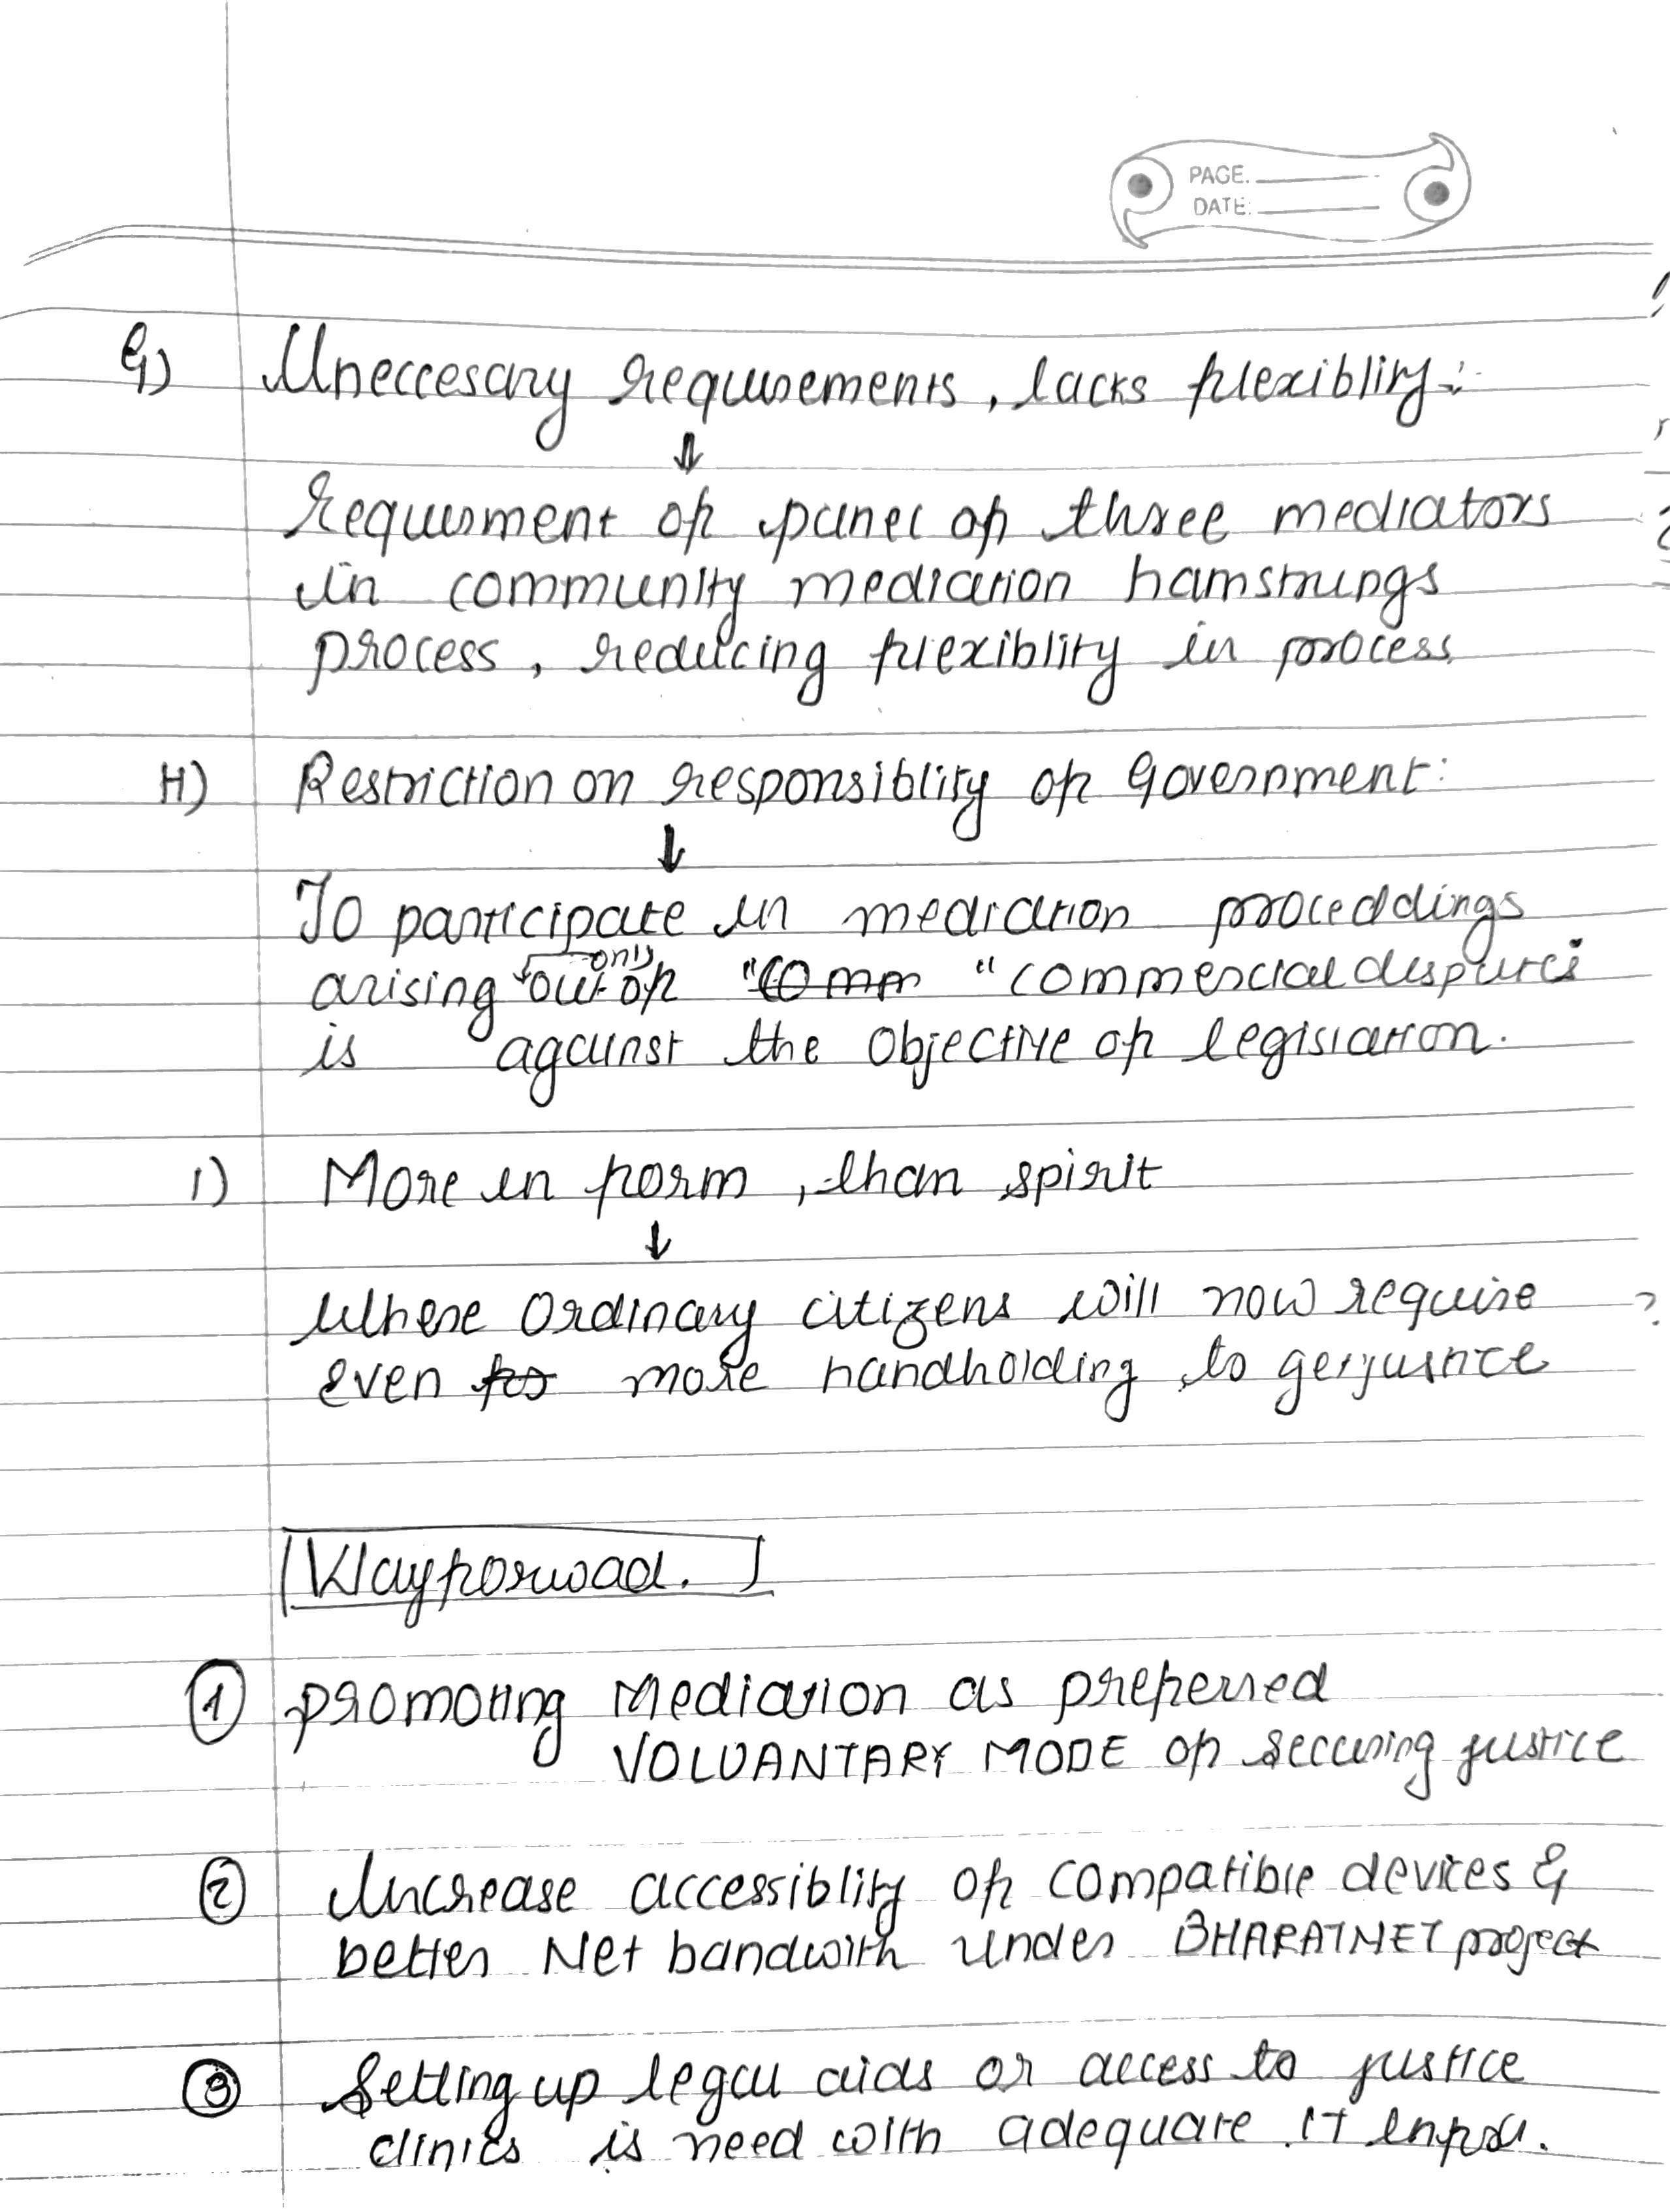 PAGE.
DATE:
G) Uneccesary requirements, lacks flexiblity:
⇓
Requirment of panel of three mediators
in community mediation hamstrings
process, reducing flexiblity in process
H) Restriction on responsiblity of Government:
↓
To participate in mediation proceddings
only
arising out of "comm "commercial disputes
is against the objective of legislation.
I) More in form, than spirit
↓
Where Ordinary citizens will now require
even for more handholding to get justice
Wayforwad.
① promoting Mediation as preferred
VOLUANTARY MODE of securing justice
② Increase accessiblity of compatible devices &
better Net bandwith under BHARATNET project
③ Setting up legal aids or access to justice
clinics is need with adequate IT infra.